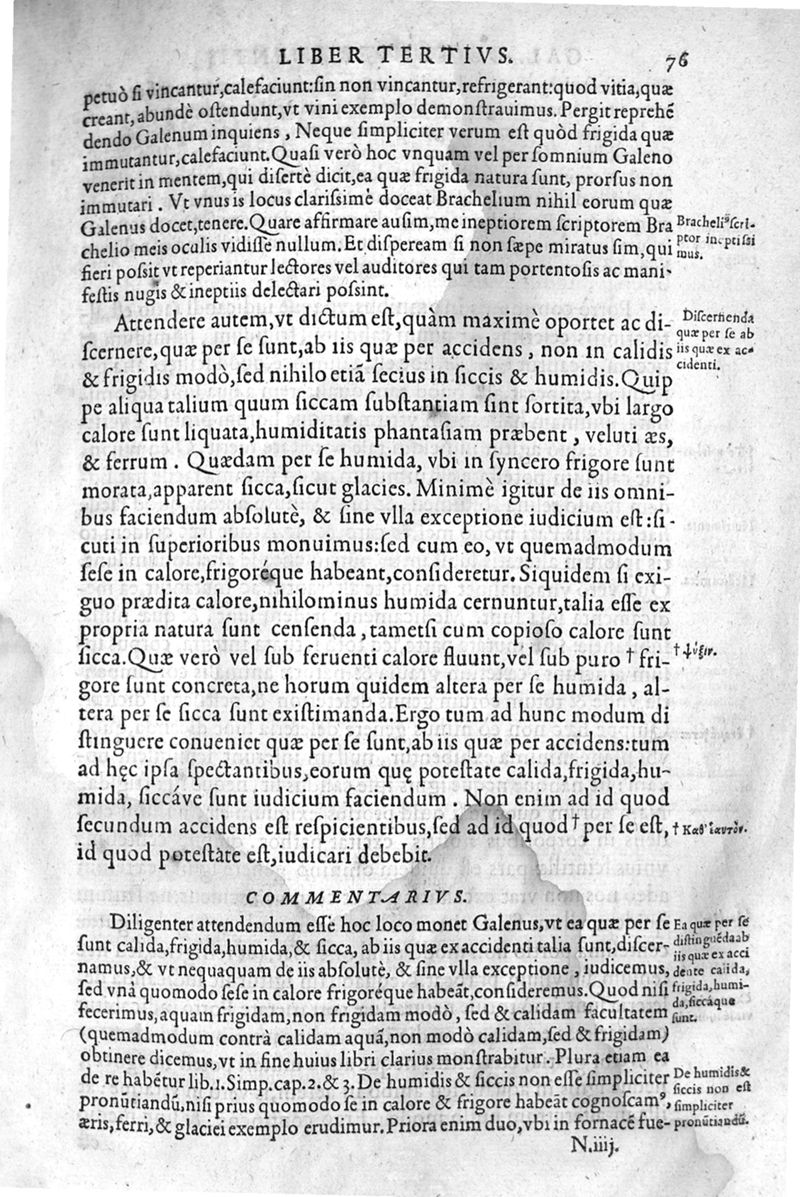 LIBER TERTIVS. 76
petuò ſi vincantur,calefaciunt:ſin non vincantur,refrigerant:quod vitia,quæ
creant,abundè oſtendunt,vt vini exemplo demonſtrauimus. Pergit reprehẽ
dendo Galenum inquiens, Neque ſimpliciter verum eſt quòd frigida quæ
immutantur,calefaciunt.Quaſi verò hoc vnquam vel per ſomnium Galeno
venerit in mentem,qui diſertè dicit,ea quæ frigida natura ſunt, prorſus non
immutari. Vt vnus is locus clariſſimè doceat Brachelium nihil eorum quæ
Galenus docet,tenere.Quare affirmare auſim,me ineptiorem ſcriptorem Bra
chelio meis oculis vidiſſe nullum. Et diſpeream ſi non ſæpe miratus ſim,qui
fieri poſsit vt reperiantur lectores vel auditores qui tam portentoſis ac mani-
feſtis nugis & ineptiis delectari poſsint.
Bracheliꝰ ſcri-
ptor ineptiſsi
mus.
Attendere autem,vt dictum eſt,quàm maximè oportet ac di-
ſcernere,quæ per ſe ſunt,ab iis quæ per accidens, non in calidis
& frigidis modò,ſed nihilo etiã ſecius in ſiccis & humidis.Quip
pe aliqua talium quum ſiccam ſubſtantiam ſint ſortita,vbi largo
calore ſunt liquata,humiditatis phantaſiam præbent, veluti æs,
& ferrum. Quædam per ſe humida, vbi in ſyncero frigore ſunt
morata,apparent ſicca,ſicut glacies. Minimè igitur de iis omni-
bus faciendum abſolutè, & ſine vlla exceptione iudicium eſt:ſi-
cuti in ſuperioribus monuimus:ſed cum eo, vt quemadmodum
ſeſe in calore,frigoréque habeant,conſideretur. Siquidem ſi exi-
guo prædita calore,nihilominus humida cernuntur,talia eſſe ex
propria natura ſunt cenſenda, tametſi cum copioſo calore ſunt
ſicca.Quæ verò vel ſub feruenti calore fluunt,vel ſub puro † fri-
gore ſunt concreta,ne horum quidem altera per ſe humida, al-
tera per ſe ſicca ſunt exiſtimanda.Ergo tum ad hunc modum di
ſtinguere conueniet quæ per ſe ſunt,ab iis quæ per accidens:tum
ad hęc ipſa ſpectantibus,eorum quę poteſtate calida,frigida,hu-
mida, ſiccáve ſunt iudicium faciendum. Non enim ad id quod
ſecundum accidens eſt reſpicientibus,ſed ad id quod † per ſe eſt,
id quod poteſtate eſt,iudicari debebit.
Diſcernenda
quæ per ſe ab
iis quæ ex ac-
cidenti.
† ψύξιν.
† Καθ' ἑαυτόν.
COMMENTARIVS.
Diligenter attendendum eſſe hoc loco monet Galenus,vt ea quæ per ſe
ſunt calida,frigida,humida,& ſicca, ab iis quæ ex accidenti talia ſunt,diſcer-
namus,& vt nequaquam de iis abſolutè, & ſine vlla exceptione, iudicemus,
ſed vnà quomodo ſeſe in calore frigoréque habeãt,conſideremus.Quod niſi
fecerimus,aquam frigidam,non frigidam modò, ſed & calidam facultatem
(quemadmodum contrà calidam aquã,non modò calidam,ſed & frigidam)
obtinere dicemus,vt in fine huius libri clarius monſtrabitur. Plura etiam ea
de re habẽtur lib.1.Simp.cap.2.& 3. De humidis & ſiccis non eſſe ſimpliciter
pronũtiandũ,niſi prius quomodo ſe in calore & frigore habeãt cognoſcamꝰ,
æris,ferri,& glaciei exemplo erudimur. Priora enim duo,vbi in fornacẽ fue-
Ea quæ per ſe
diſtinguẽda ab
iis quæ ex acci
dente calida,
frigida,humi-
da,ſiccáque
ſunt.
De humidis &
ſiccis non eſt
ſimpliciter
pronũtiandũ.
N.iiij.